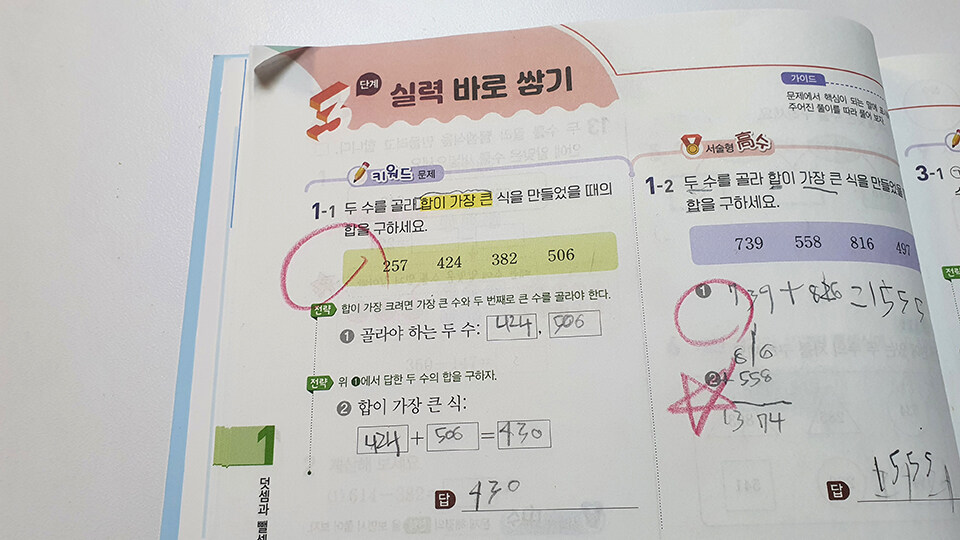 3 단계 실력 바로 쌓기
키워드 문제
1-1 두 수를 골라 합이 가장 큰 식을 만들었을 때의
합을 구하세요.
257 424 382 506
전략 합이 가장 크려면 가장 큰 수와 두 번째로 큰 수를 골라야 한다.
1 골라야 하는 두 수: 424, 506
전략 위 1에서 답한 두 수의 합을 구하자.
2 합이 가장 큰 식:
424 + 506 = 430
답 430
가이드
문제에서 핵심이 되는 말에
주어진 풀이를 따라 풀어 보자.
서술형 高수
1-2 두 수를 골라 합이 가장 큰 식을 만들었을
합을 구하세요.
739 558 816 497
1 739 + 816 = 1555
816
2 +558
1374
답 1555
3-1
전략
1
덧셈과 뺄셈